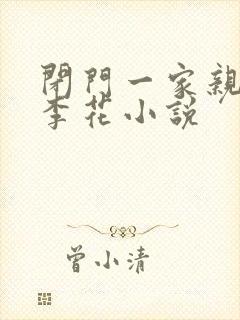 閉門一家親
李花小說
曾小清